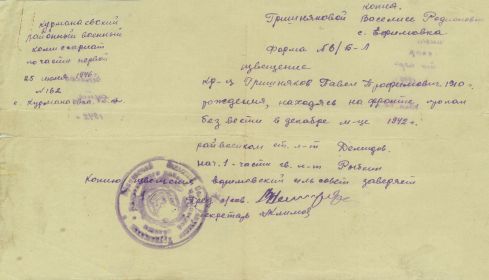 копия.
Курманаевский
районный военный
комиссариат
по части первой
25 июня 1946 г.
№ 162
с. Курманаевка
Гришняковой
Василисе Родионовн
с. Ефимовка
Форма № 8/Б-Л
извещение
кр-ц Гришняков Павел Трофимович 1910 г.
рождения, находясь на фронте, пропал
без вести в декабре м-це 1942 г.
райвоенком ст. л-т Демидов.
нач. 1-части гв. л-т Рыбкин
Копию извещения Ефимовский сельсовет заверяет
Пред с/сов.
секретарь Климов